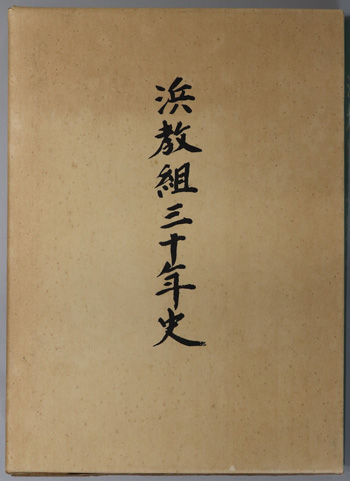 浜教組三十年史